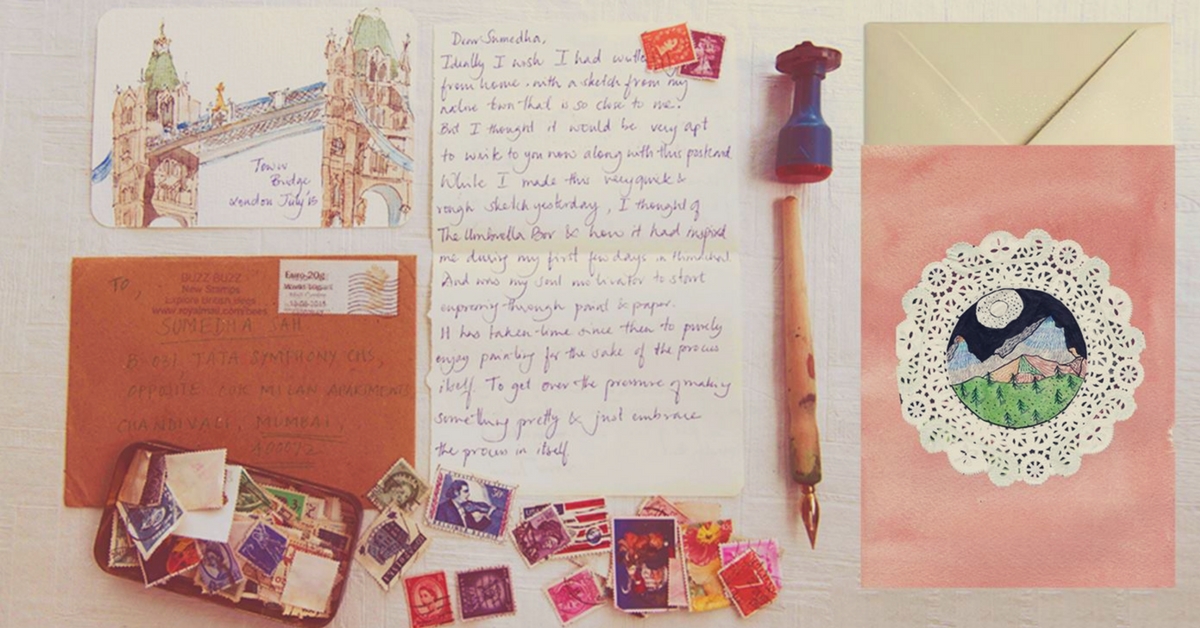 Tower
Bridge
London July'15
Dear Sumedha,
Ideally I wish I had
from home with a sketch from my
native town that is so close to me.
But I thought it would be very apt
to write to you now along with this postcard.
While I made this very quick &
rough sketch yesterday, I thought of
The Umbrella Box & how it had inspired
me during my first few days in
And was my soul motivator to start
expressing through paint & paper.
It has taken time since then to purely
enjoy painting for the sake of the process
itself. To get over the pressure of making
something pretty & just embrace
the process in itself.
TO,
BUZZ BUZZ
New Stamps
Explore British bees
www.royalmail.com/bees
Euro-20g
SUMEDHA SAH
B-031, TATA SYMPHONY CHS,
OPPOSITE MILAN APARTMENTS
CHANDIVALI, MUMBAI,
400072